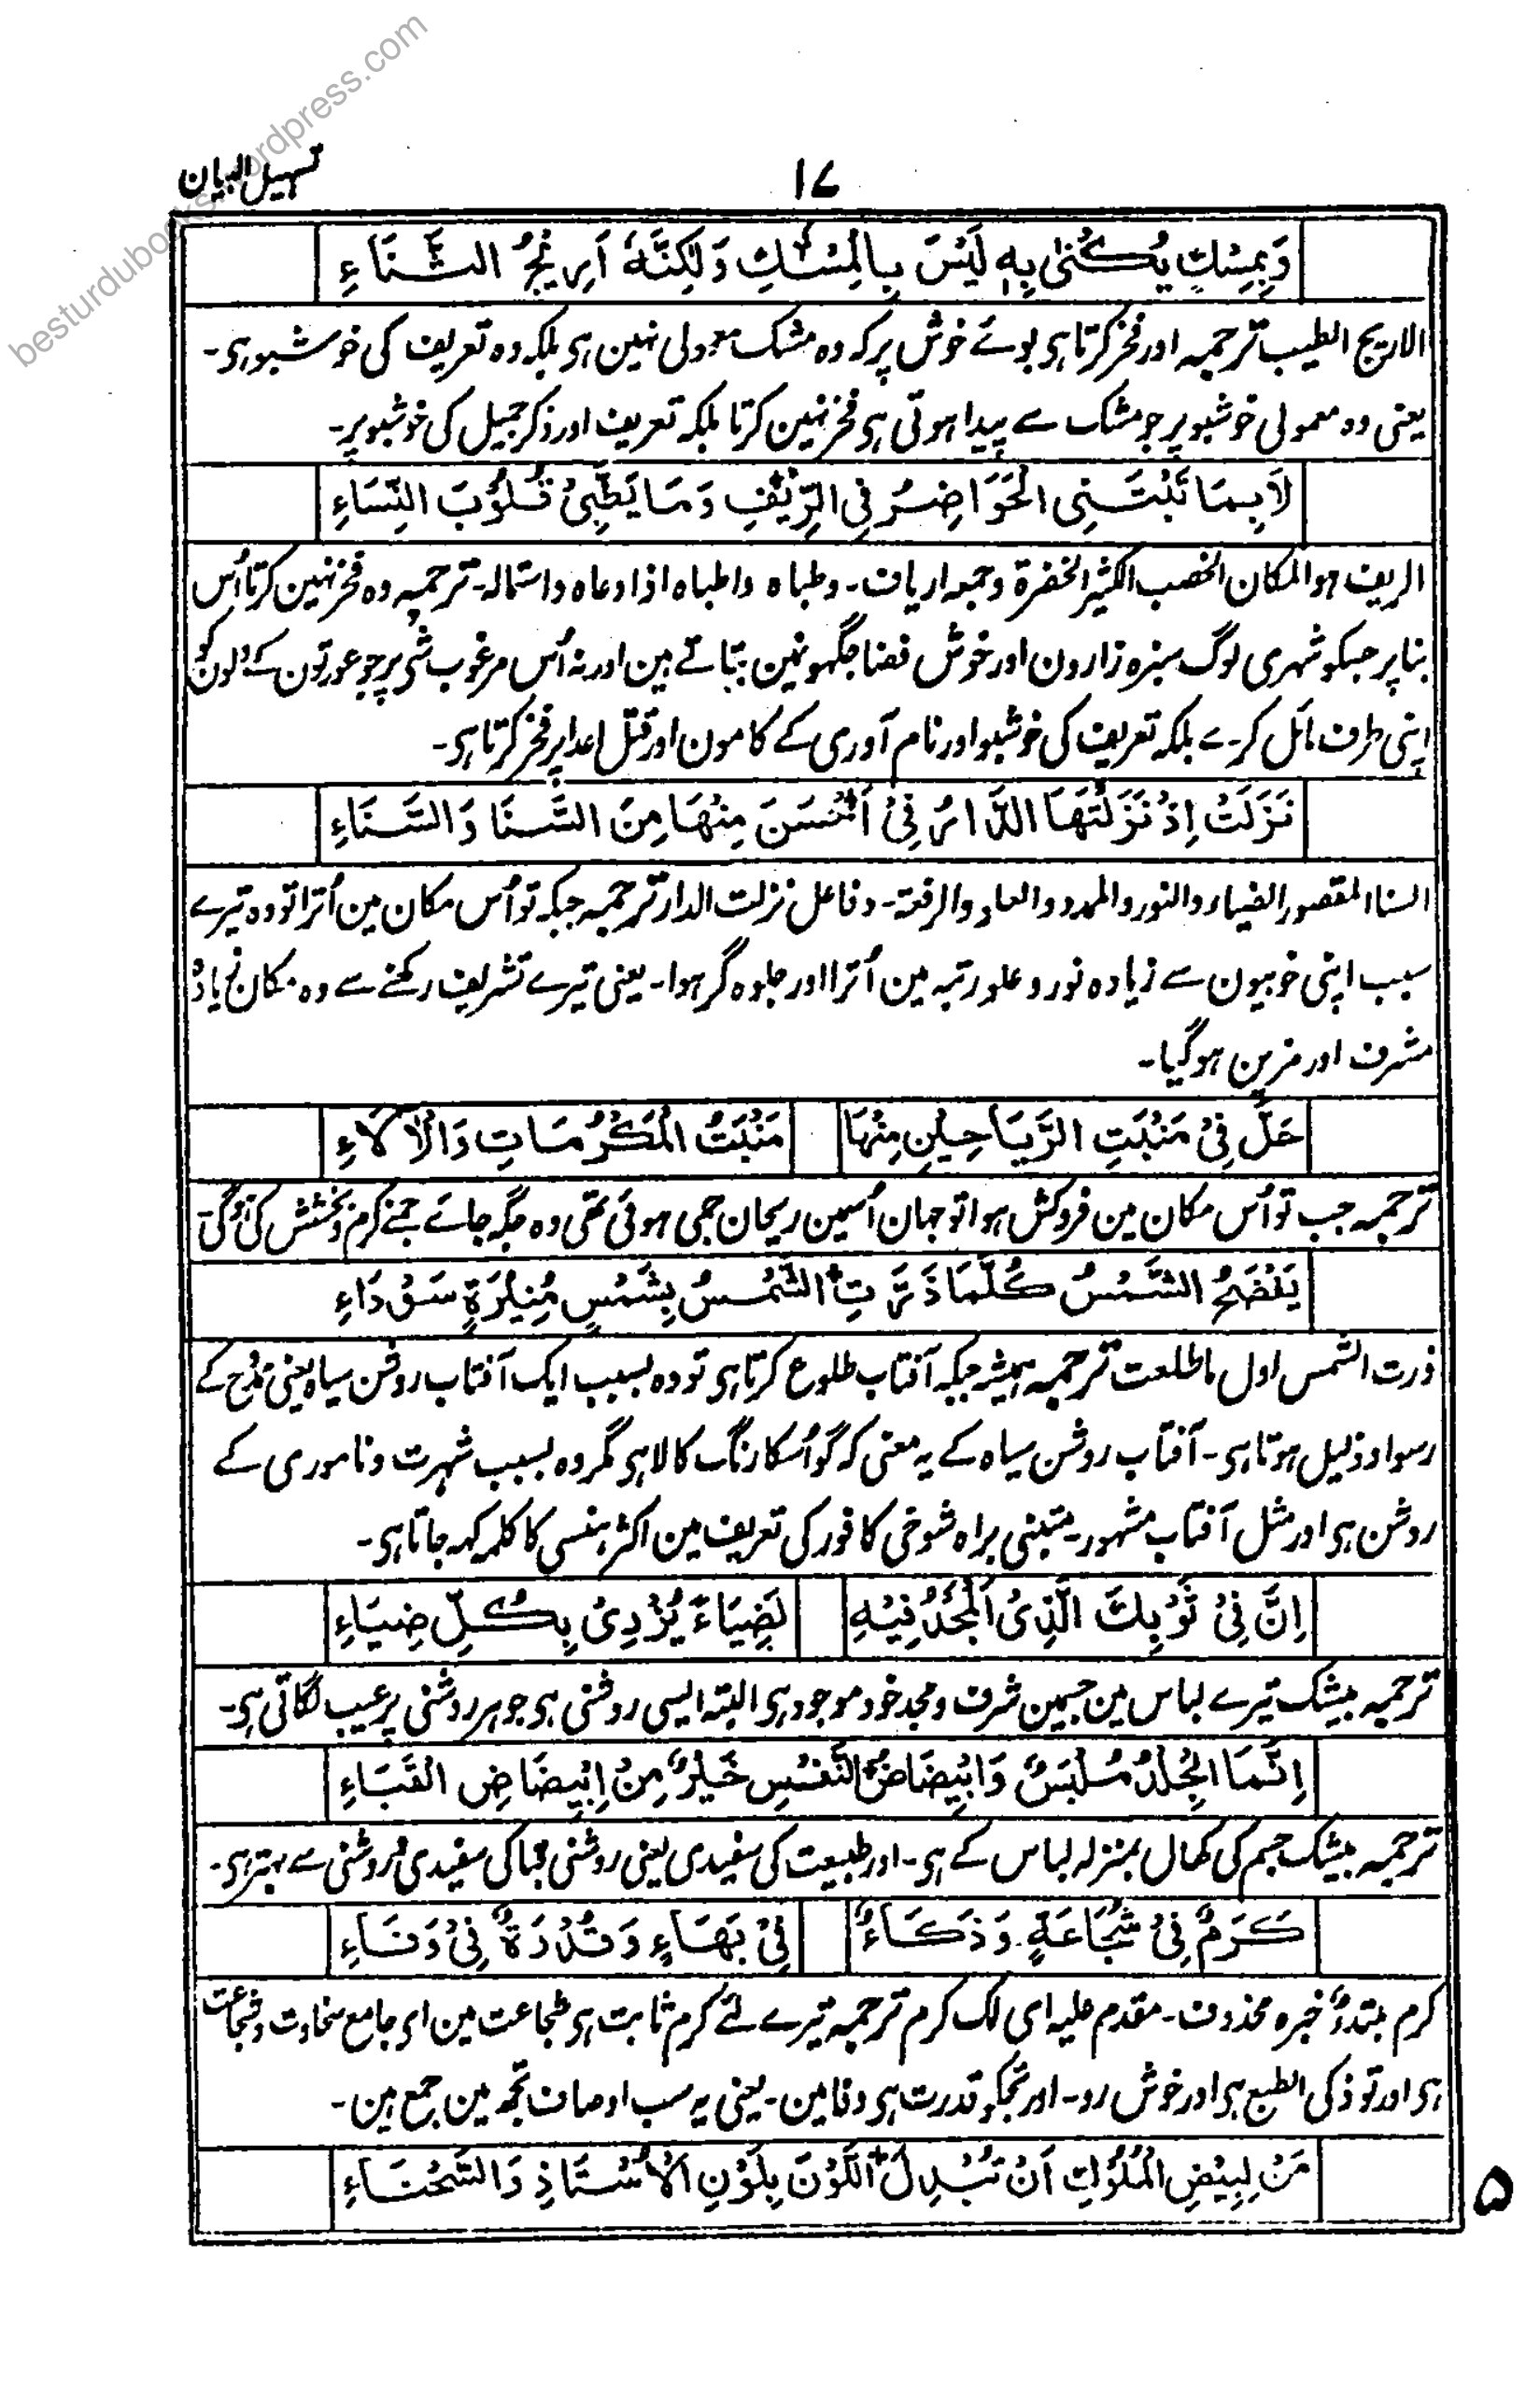 besturdubooks.wordpress.com
تسہیل البیان
۱۷
وَبِمِسْكٍ يُكْنٰى بِهٖ لَيْسَ بِالْمِسْكِ وَلٰكِنَّهٗ اَرِيْجُ الثَّنَاءِ
الاریج الطیب ترجمہ اور فخر کرتا ہی بوئے خوش پر کہ وہ مشک معمولی نہین ہی بلکہ وہ تعریف کی خوشبو ہی۔
یعنی وہ معمولی خوشبو پر جو مشک سے پیدا ہوتی ہی فخر نہین کرتا بلکہ تعریف اور ذکر جمیل کی خوشبو پر۔
لَا بِمَا تَبْتَنِى الْحَوَاضِرُ فِى الرِّيْفِ وَمَا يَطَّبِىْ قُلُوْبَ النِّسَاءِ
الریف ہو المکان الخصب الکثیر الخضرۃ وجمعہ اریاف۔ وطباہ واطباہ اذا دعاہ واستمالہ۔ ترجمہ وہ فخر نہین کرتا اُس
بنا پر جسکو شہری لوگ سبزہ زارون اور خوش فضا جگہونمین بناتے ہین اور نہ اُس مرغوب شی پر جو عورتون کے دلون کو
اپنی طرف مائل کرے بلکہ تعریف کی خوشبو اور نام آوری کے کامون اور قتل اعدا پر فخر کرتا ہی۔
نَزَلَتْ اِذْ نَزَلْتَهَا الدَّارُ فِىْ اَحْسَنَ مِنْهَا مِنَ السَّنَا وَالسَّنَاءِ
السنا المقصور الضیاء والنور والممدود العلو والرفعۃ۔ وفاعل نزلت الدار ترجمہ جبکہ تو اُس مکان مین اُترا تو وہ تیرے
سبب اپنی خوبیون سے زیادہ نور و علو رتبہ مین اُترا اور جلوہ گر ہوا۔ یعنی تیرے تشریف رکھنے سے وہ مکان زیادہ
مشرف اور مزین ہوگیا۔
حَلَّ فِىْ مَنْبَتِ الرَّيَاحِيْنِ مِنْهَا مَنْبَتُ الْمَكْرُمَاتِ وَالْاٰلَاءِ
ترجمہ جب تو اُس مکان مین فروکش ہوا تو جہان اُسمین ریحان جمی ہوئی تھی وہ جگہ جائے جمنے کرم و بخشش کی ہوگئی۔
يَفْضَحُ الشَّمْسَ كُلَّمَا ذَرَّتِ الشَّمْسُ بِشَمْسٍ مُنِيْرَةٍ سَوْدَاءِ
ذرت الشمس اول ما طلعت ترجمہ ہمیشہ جبکہ آفتاب طلوع کرتا ہی تو وہ بسبب ایک آفتاب روشن سیاہ یعنی ممدوح کے
رسوا و ذلیل ہوتا ہی۔ آفتاب روشن سیاہ کے یہ معنی کہ گو اُسکا رنگ کالا ہی مگر وہ بسبب شہرت و ناموری کے
روشن ہی اور مثل آفتاب مشہور۔ متنبی براہ شوخی کافور کی تعریف مین اکثر ہنسی کا کلمہ کہہ جاتا ہی۔
اِنَّ فِىْ ثَوْبِكَ الَّذِى الْمَجْدُ فِيْهِ لَضِيَاءً يُزْرِىْ بِكُلِّ ضِيَاءِ
ترجمہ بیشک تیرے لباس مین جسمین شرف و مجد خود موجود ہی البتہ ایسی روشنی ہی جو ہر روشنی پر عیب لگاتی ہی۔
اِنَّمَا الْجِلْدُ مَلْبَسٌ وَابْيِضَاضُ النَّفْسِ خَيْرٌ مِنْ اِبْيِضَاضِ الْقَبَاءِ
ترجمہ بیشک جسم کی کھال بمنزلہ لباس کے ہی۔ اور طبیعت کی سفیدی یعنی روشنی قبا کی سفیدی و روشنی سے بہتر ہی۔
كَرَمٌ فِىْ شُجَاعَةٍ وَذَكَاءٌ فِىْ بَهَاءٍ وَقُدْرَةٌ فِىْ وَفَاءِ
کرم مبتدءٌ خبرہ محذوف۔ مقدم علیہ ای لک کرم ترجمہ تیرے لئے کرم ثابت ہی شجاعت مین ای جامع سخاوت و شجاعت
ہی اور تو ذکی الطبع ہی اور خوش رو۔ اور تجکو قدرت ہی وفا مین۔ یعنی یہ سب اوصاف تجھ مین جمع ہین۔
مَنْ لِبِيْضِ الْمُلُوْكِ اَنْ تُبْدِلَ اللَّوْنَ بِلَوْنِ الْاُسْتَاذِ وَالسَّحْنَاءِ
۵